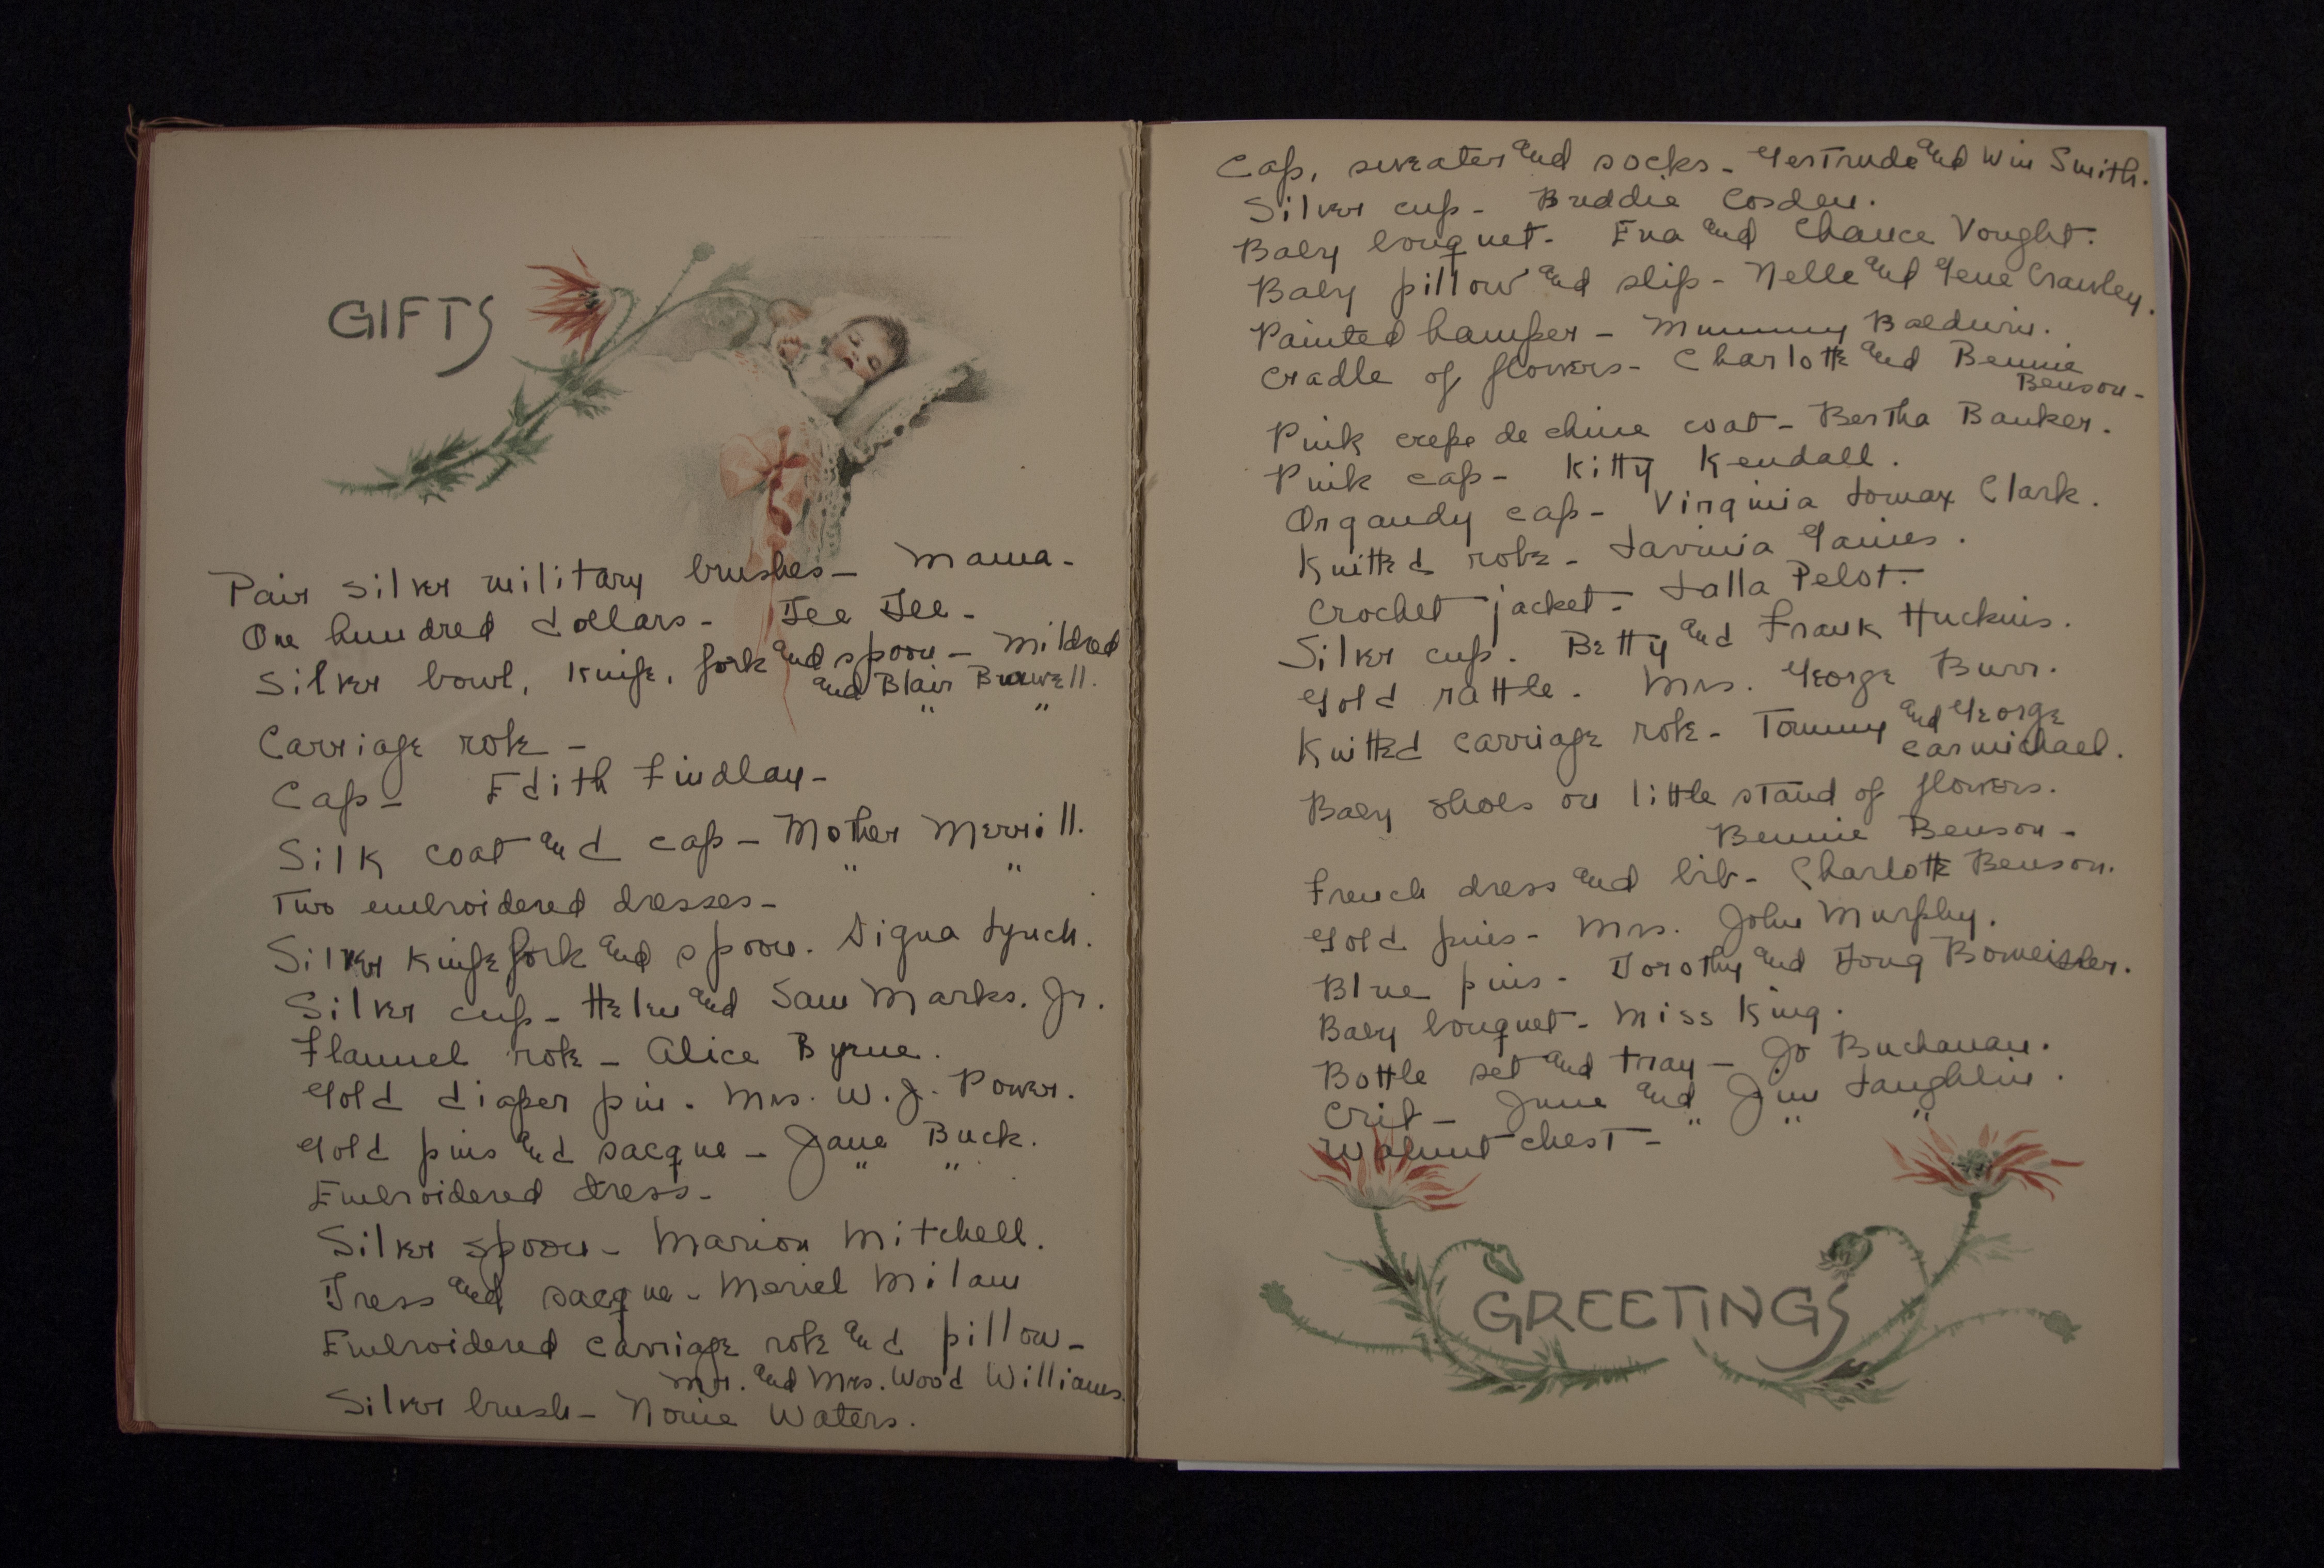 GIFTS
Pair silver military brushes - Mama -
One hundred dollars - Dee Dee -
Silver bowl, knife, fork and spoon - Mildred
and Blair Burwell.
Carriage robe - " "
Cap - Edith Findlay -
Silk coat and cap - Mother Merrill.
Two embroidered dresses - " "
Silver knife fork and spoon. Signa Lynch.
Silver cup - Helen and Sam Marks. Jr.
Flannel robe - Alice Byrne.
Gold diaper pin. Mrs. W. J. Power.
Gold pins and sacque - Jane Buck.
Embroidered dress - " "
Silver spoon - Marion Mitchell.
Dress and sacque - Meriel Milam
Embroidered carriage robe and pillow -
Mr. and Mrs. Wood Williams.
Silver brush - Nonie Waters.
Cap, sweater and socks - Gertrude and Win Smith.
Silver cup - Buddie Cosden.
Baby bouquet - Ena and Chance Vought.
Baby pillow and slip - Nelle and Gene Crawley.
Painted hamper - Mummy Baldwin.
Cradle of flowers - Charlotte and Bennie
Benson -
Pink crepe de chine coat - Bertha Banker.
Pink cap - Kitty Kendall.
Organdy cap - Virginia Lomax Clark.
Knitted robe - Lavinia Gaines.
Crochet jacket - Lalla Pelot.
Silver cup. Betty and Frank Huckins.
Gold rattle. Mrs. George Burr.
Knitted carriage robe - Tommy and George
Carmichael.
Baby shoes on little stand of flowers.
Bennie Benson -
French dress and bib - Charlotte Benson.
Gold pins - Mrs. John Murphy.
Blue pins - Dorothy and Doug
Baby bouquet - Miss King.
Bottle set and tray - Jo Buchanan.
Crib - June and Jim Laughlin.
Walnut chest - " " "
GREETINGS